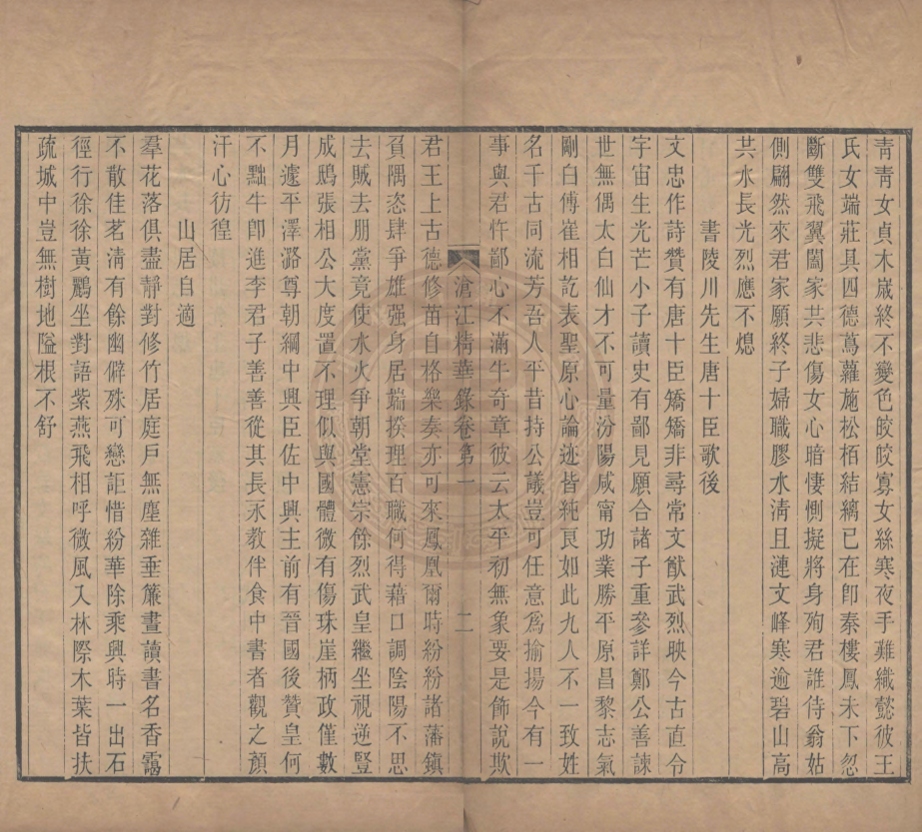 青青女貞木嵗終不變色皎皎寡女絲寒夜手難織懿彼王
氏女端莊具四德蔦蘿施松栢結縭已在卽秦樓鳳未下忽
斷雙飛翼闔家共悲傷女心暗悽惻擬將身殉君誰侍翁姑
側翩然來君家願終子婦職膠水淸且漣文峰寒逾碧山高
共水長光烈應不熄
書陵川先生唐十臣歌後
文忠作詩贊有唐十臣矯矯非尋常文猷武烈映今古直令
宇宙生光芒小子讀史有鄙見願合諸子重參詳鄭公善諫
世無偶太白仙才不可量汾陽咸甯功業勝平原昌黎志氣
剛白傅崔相訖表聖原心論迹皆純良如此九人不一致姓
名千古同流芳吾人平昔持公議豈可任意爲揄揚今有一
事與君忤鄙心不滿牛奇章彼云太平初無象要是飾說欺
滄江精華錄卷第一
二
君王上古德修苗自格樂奏亦可來鳳凰爾時紛紛諸藩鎮
負隅恣肆爭雄强身居端揆理百職何得藉口調陰陽不思
去賊去朋黨竟使水火爭朝堂憲宗餘烈武皇繼坐視逆豎
成鴟張相公大度置不理似與國體微有傷珠崖柄政僅數
月遽平澤潞尊朝綱中興臣佐中興主前有晉國後贊皇何
不黜牛卽進李君子善善從其長永敎伴食中書者觀之顏
汗心彷徨
山居自適
羣花落俱盡靜對修竹居庭戶無塵雜垂簾晝讀書名香靄
不散佳茗淸有餘幽僻殊可戀詎惜紛華除乘興時一出石
徑行徐徐黃鸝坐對語紫燕飛相呼微風入林際木葉皆扶
疏城中豈無樹地隘根不舒